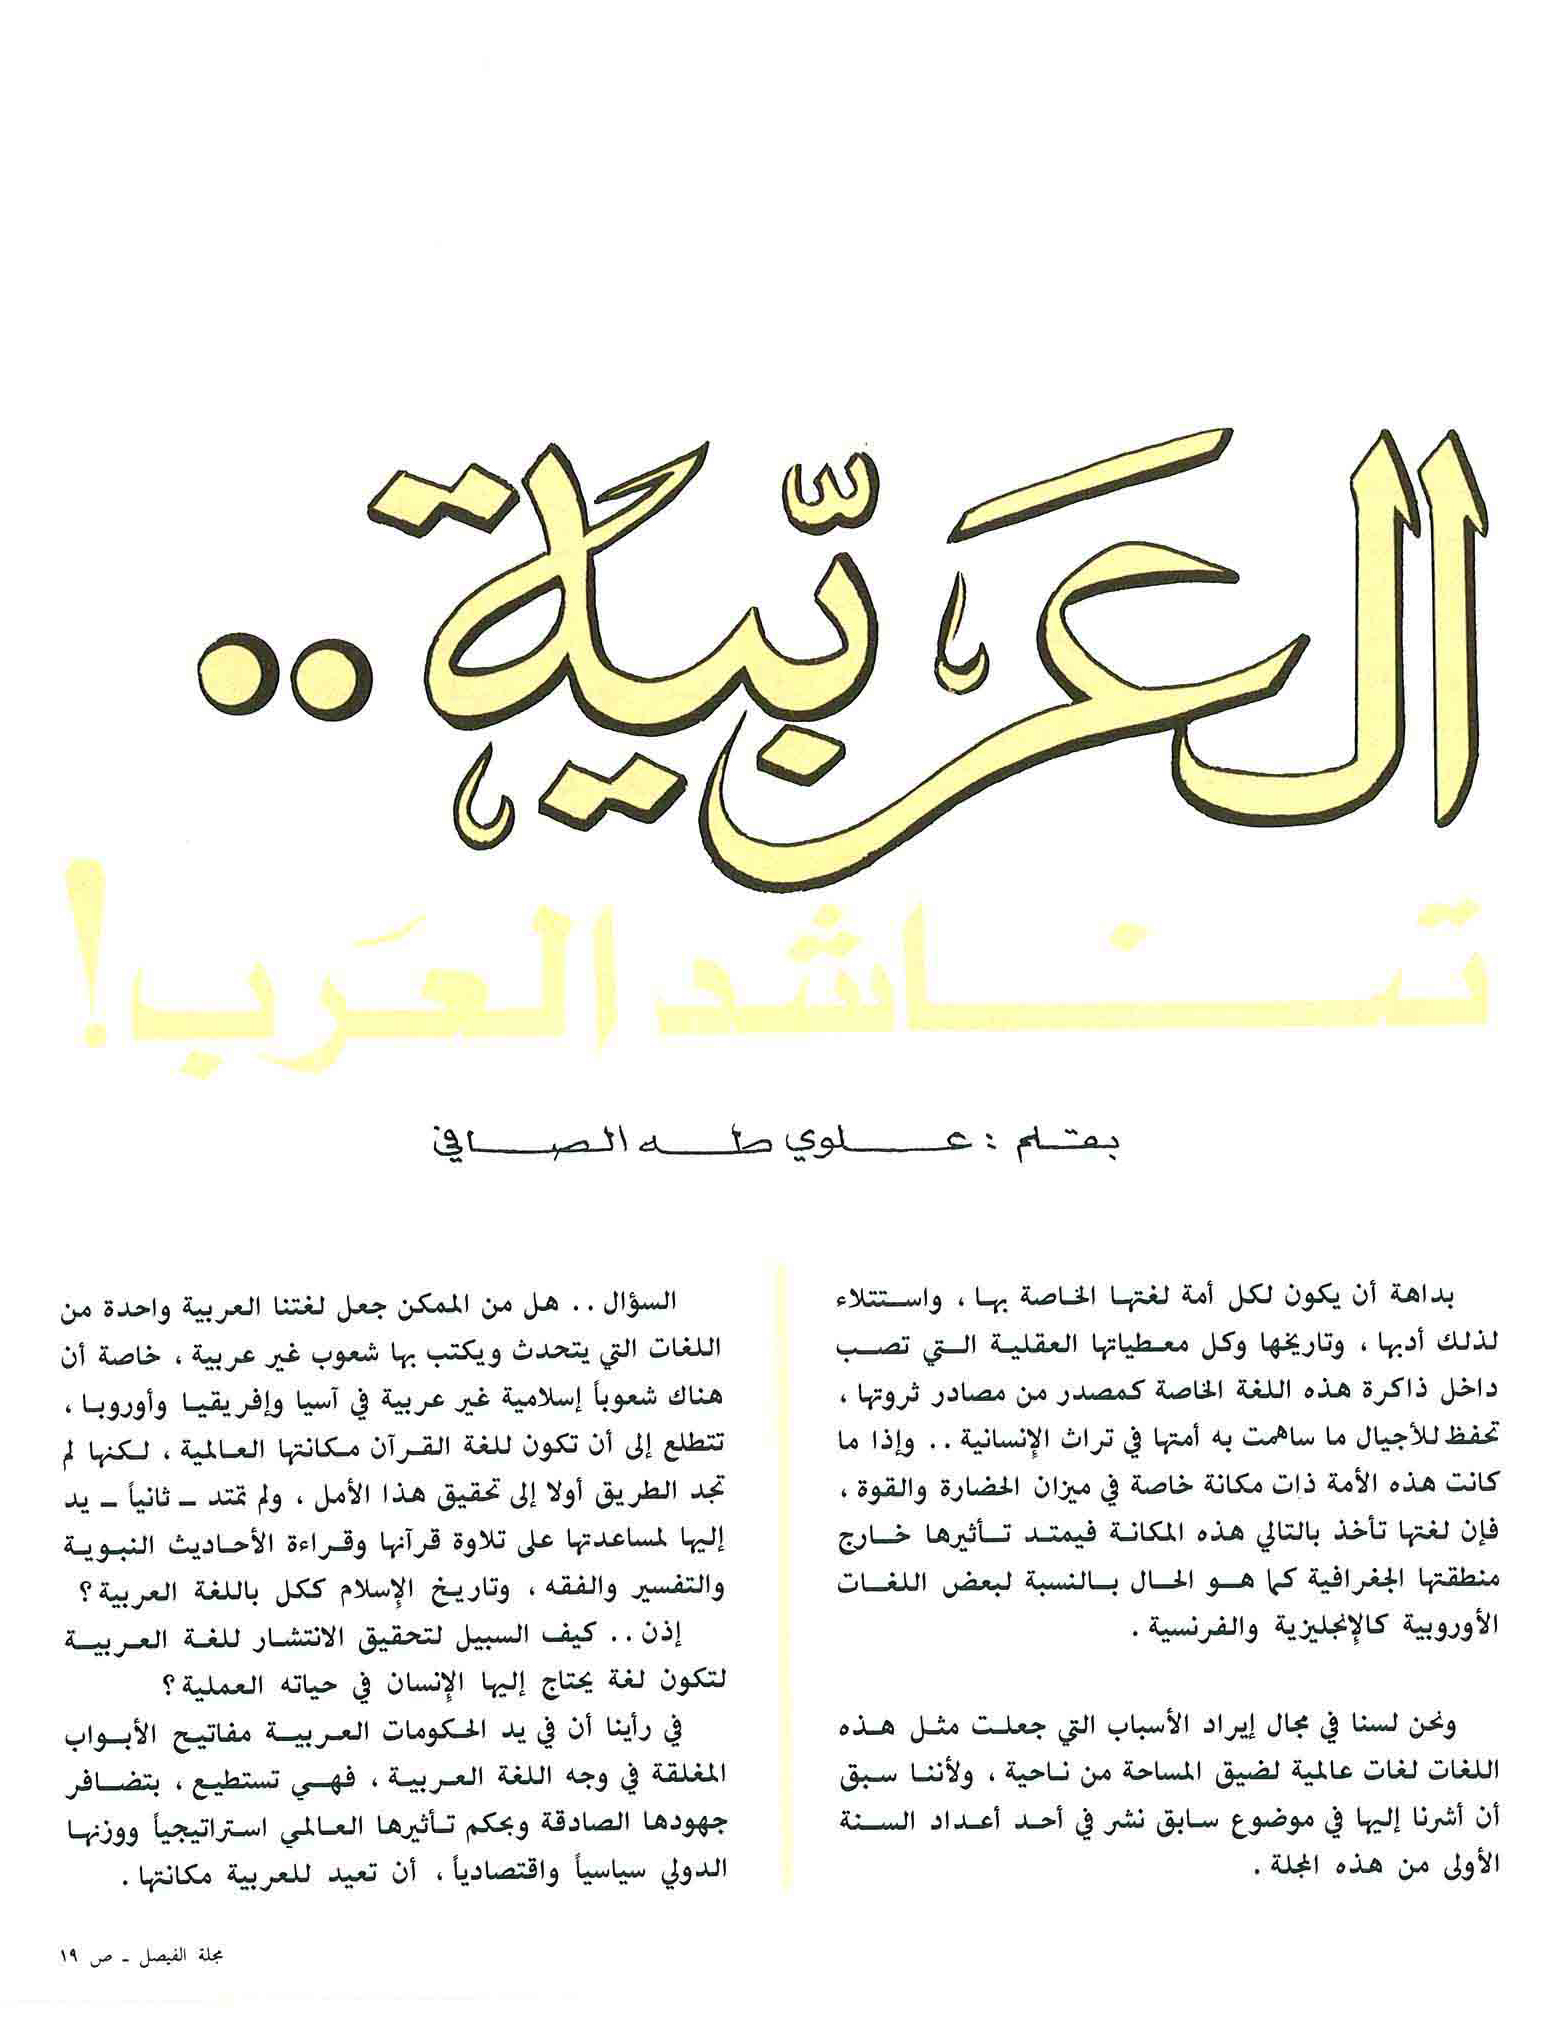 العَربيّة..
تناشد العَرب!
بقلم : علوي طه الصافي
بداهة أن يكون لكل أمة لغتها الخاصة بها ، واستتلاء
لذلك أدبها ، وتاريخها وكل معطياتها العقلية التي تصب
داخل ذاكرة هذه اللغة الخاصة كمصدر من مصادر ثروتها ،
تحفظ للأجيال ما ساهمت به أمتها في تراث الإنسانية .. وإذا ما
كانت هذه الأمة ذات مكانة خاصة في ميزان الحضارة والقوة ،
فإن لغتها تأخذ بالتالي هذه المكانة فيمتد تأثيرها خارج
منطقتها الجغرافية كما هو الحال بالنسبة لبعض اللغات
الأوروبية كالإنجليزية والفرنسية .
ونحن لسنا في مجال إيراد الأسباب التي جعلت مثل هذه
اللغات لغات عالمية لضيق المساحة من ناحية ، ولأننا سبق
أن أشرنا إليها في موضوع سابق نشر في أحد أعداد السنة
الأولى من هذه المجلة .
السؤال .. هل من الممكن جعل لغتنا العربية واحدة من
اللغات التي يتحدث ويكتب بها شعوب غير عربية ، خاصة أن
هناك شعوباً إسلامية غير عربية في آسيا وإفريقيا وأوروبا ،
تتطلع إلى أن تكون للغة القرآن مكانتها العالمية ، لكنها لم
تجد الطريق أولا إلى تحقيق هذا الأمل ، ولم تمتد - ثانياً - يد
إليها لمساعدتها على تلاوة قرآنها وقراءة الأحاديث النبوية
والتفسير والفقه ، وتاريخ الإسلام ككل باللغة العربية ؟
إذن .. كيف السبيل لتحقيق الانتشار للغة العربية
لتكون لغة يحتاج إليها الإنسان في حياته العملية ؟
في رأينا أن في يد الحكومات العربية مفاتيح الأبواب
المغلقة في وجه اللغة العربية ، فهي تستطيع ، بتضافر
جهودها الصادقة وبحكم تأثيرها العالمي استراتيجياً ووزنها
الدولي سياسياً واقتصادياً ، أن تعيد للعربية مكانتها .
مجلة الفيصل - ص ١٩